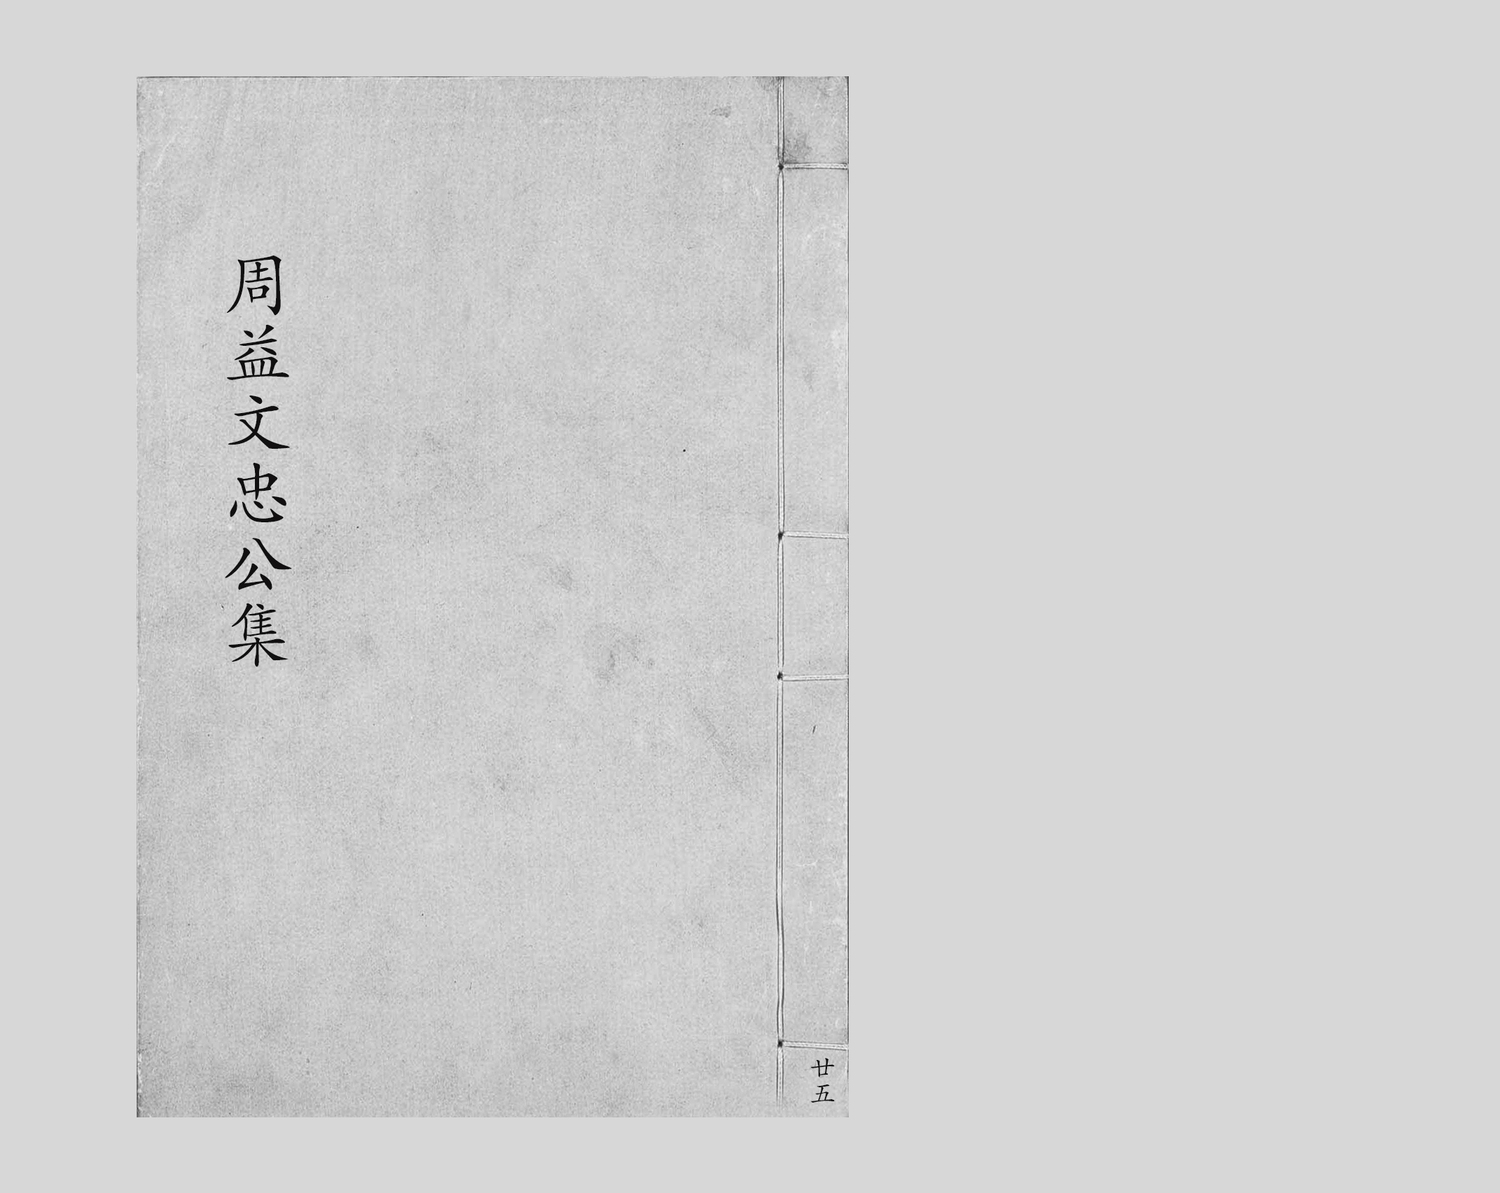 周益文忠公集
廿五